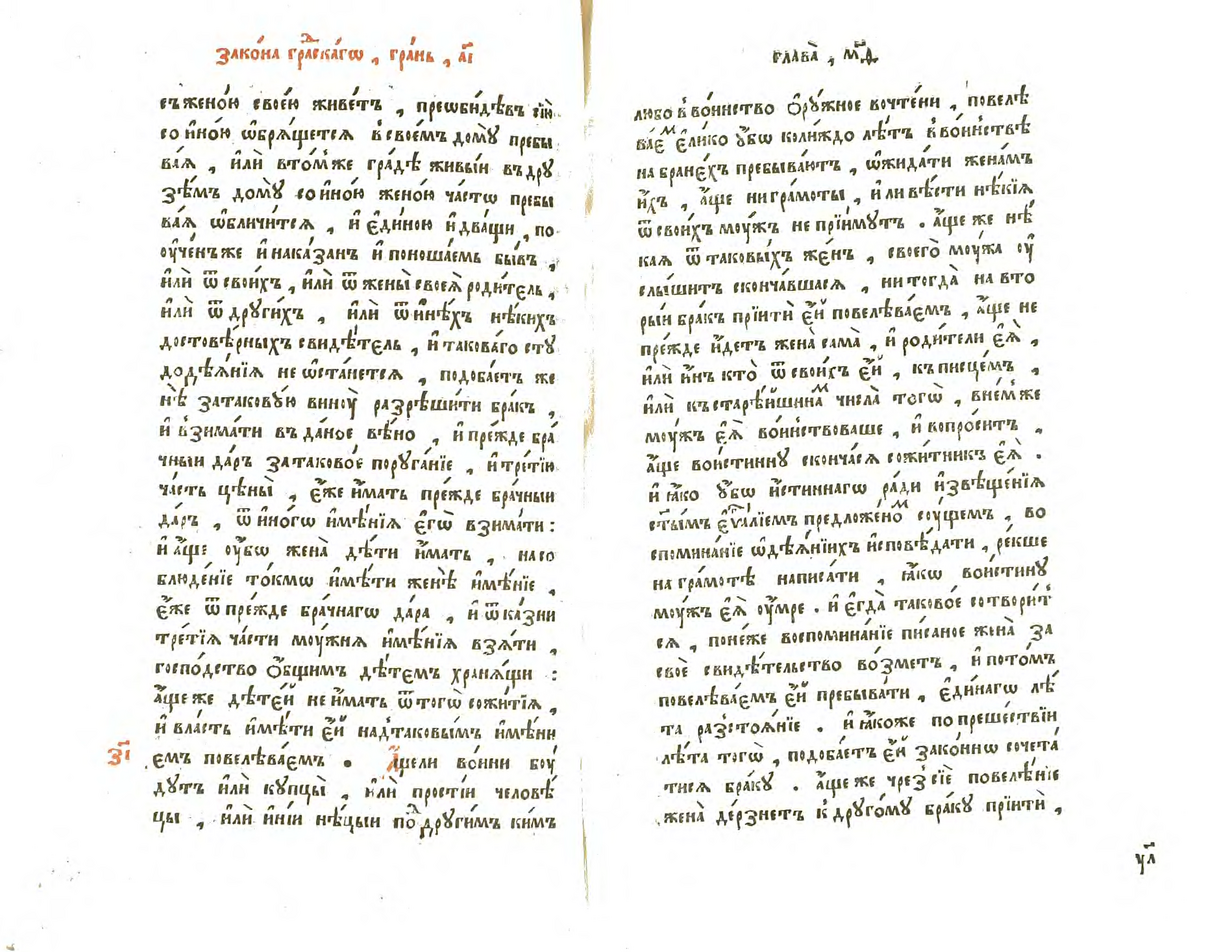 Зако́на гра́дскагѡ , гра́нь , а҃і
съ жено́ю свое́ю живе́тъ , преѡби́дѣвъ сїю̀
со и҆но́ю ѡ҆бря́щется в свое́мъ дому̀ пребы
ва́я , и҆лѝ в то́мже гра́дѣ живы́и въ дру
зѣ́мъ дому̀ со и҆но́ю жено́ю ча́стѡ пребы
ва́я ѡ҆бличи́тся , и҆ є҆ди́ною и҆ два́щи , по
оу҆че́нъ же и҆ нака́занъ и҆ поноша́емь бы́въ ,
и҆лѝ ѿ свои́хъ , и҆лѝ ѿ жены̀ своея̀ роди́тель ,
и҆лѝ ѿ други́хъ , и҆лѝ ѿ и҆нѣ́хъ нѣ́кихъ
достовѣ́рныхъ свидѣ́тель , и҆ такова́го сту
додѣя́нїя не ѡ҆ста́нется , подоба́етъ же
нѣ̀ за такову́ю вину̀ разрѣши́ти бра́къ ,
и҆ взима́ти въ да́ное вѣ́но , и҆ пре́жде бра́
чныи да́ръ за таково́е поруга́нїе , и҆ тре́тїю
ча́сть цѣны̀ , є҆́же и҆́мать пре́жде бра́чныи
да́ръ , ѿ и҆но́гѡ и҆мѣ́нїя є҆гѡ̀ взима́ти :
и҆ а҆́ще оу҆́бѡ жена̀ дѣ́ти и҆́мать , на со
блюде́нїе то́кмѡ и҆мѣ́ти женѣ̀ и҆мѣ́нїе ,
є҆́же ѿ пре́жде бра́чнагѡ да́ра , и҆ ѿ ка́зни
тре́тїя ча́сти моу́жня и҆мѣ́нїя взя́ти ,
госпо́дство ѻ҆́бщимъ дѣ́темъ храня́щи :
а҆́ще же дѣте́й не и҆́мать ѿ тогѡ̀ сожи́тїя ,
и҆ вла́сть и҆мѣ́ти є҆́й над таковы́мъ и҆мѣ́нїи
з҃і
емъ повелѣва́емъ . А҆́щели во́ини боу́
дутъ и҆лѝ купцы̀ , и҆лѝ прості́и человѣ́
цы , и҆лѝ и҆ні́и нѣ́цыи под други́мъ ки́мъ
глава̀ , м҃д
любо в во́инство ѻ҆ру́жное вочте́ни , повелѣ
ва́ем є҆ли́ко у҆́бѡ коли́ждо лѣ́тъ в во́инствѣ
на бране́хъ пребыва́ютъ , ѡ҆жида́ти жена́мъ
и҆́хъ , а҆́ще ни гра́моты , и҆ли вѣ́сти нѣ́кїя
ѿ свои́хъ моу́жъ не прїи́мутъ . а҆́ще же нѣ́
кая ѿ таковы́хъ же́нъ , своего̀ моу́жа оу҆
слы́шитъ сконча́вшася , ни тогда̀ на вто
ры́и бра́къ прїитѝ є҆́й повелѣва́емъ , а҆́ще не
пре́жде и҆́детъ жена̀ сама̀ , и҆ роди́тели є҆я̀ ,
и҆лѝ и҆́нъ кто̀ ѿ свои́хъ є҆́й , къ писце́мъ ,
и҆лѝ къ старѣ́йшинам числа̀ тогѡ̀ , в не́мже
моу́жъ є҆я̀ во́инствоваше , и҆ вопро́ситъ ,
а҆́ще вои́стинну сконча́ся сожи́тникъ є҆я̀ .
и҆ ꙗ҆́ко у҆́бѡ и҆́стиннагѡ ра́ди и҆звѣще́нїя
ст҃ы́мъ є҆ѵⷢ҇лїемъ предложе́ном су́щемъ , во
спомина́нїе ѡ҆ дѣя́нїихъ и҆сповѣ́дати , ре́кше
на гра́мотѣ написа́ти , ꙗ҆́кѡ вои́стину
моу́жъ є҆я̀ оу҆́мре . и҆ є҆гда̀ таково́е сотвори́т
ся , поне́же воспомина́нїе пи́саное жена̀ за
своѐ свидѣ́тельство во́зметъ , и҆ пото́мъ
повелѣва́емъ є҆́й пребыва́ти , є҆ди́нагѡ лѣ́
та разстоя́нїе . и҆ ꙗ҆́коже по преше́ствїи
лѣ́та тогѡ̀ , подоба́етъ є҆́й зако́ннѡ сочета́
тися бра́ку . а҆́ще же чрез сїѐ повелѣ́нїе
жена̀ де́рзнетъ к друго́му бра́ку прїитѝ ,
у҃л